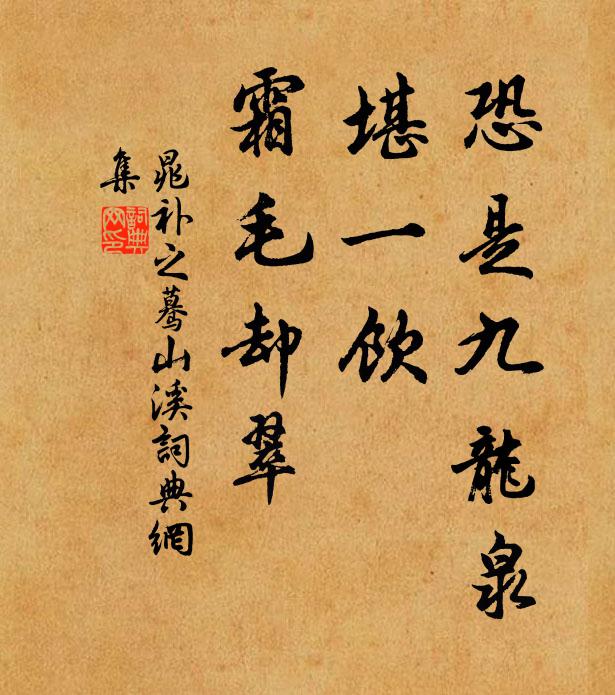 恐是九龍泉
堪一飲
霜毛却翠
晁补之驀山溪詞典網
集
詞典網印